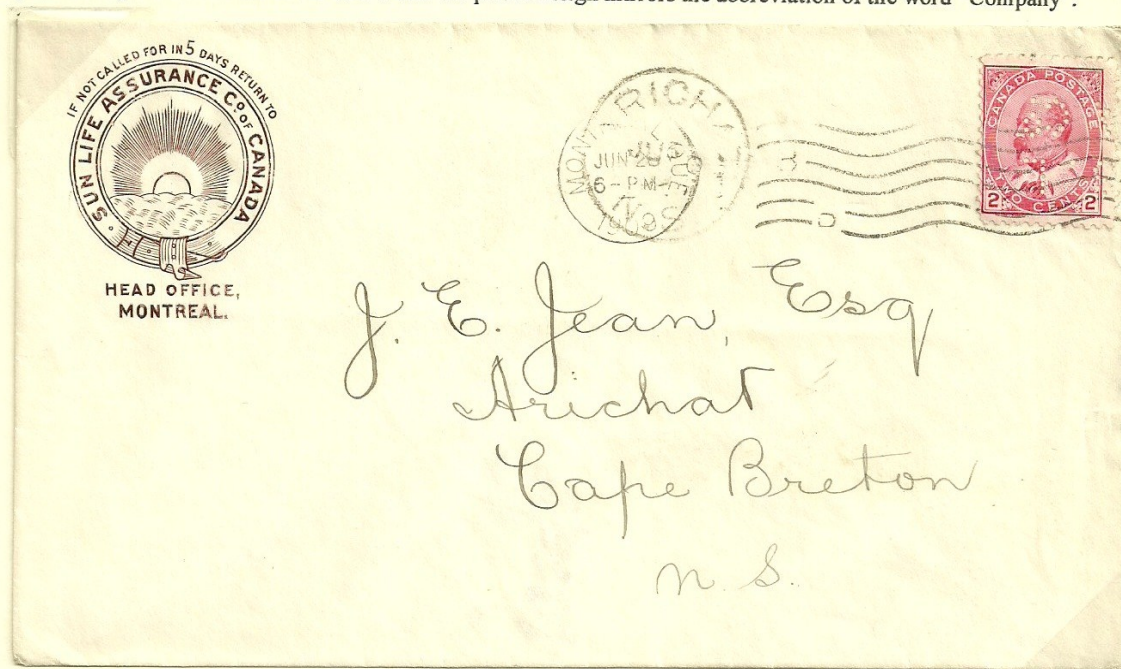 the abbreviation of the word "Company".
IF NOT CALLED FOR IN 5 DAYS RETURN TO
SUN LIFE ASSURANCE Co. OF CANADA
HEAD OFFICE,
MONTREAL.
ARICHA
MONT
JUN 2
6 - PM
1909
CANADA POSTAGE
2 TWO CENTS 2
J. E. Jean, Esq
Arichat
Cape Breton
N. S.